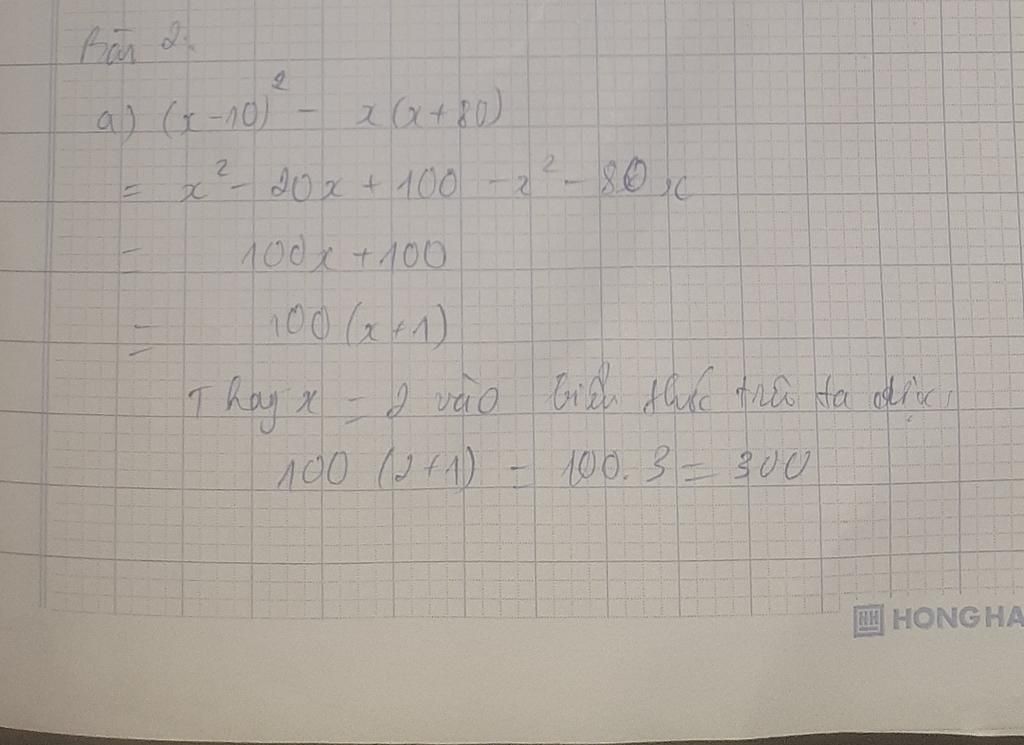 Bài 2:
a) (x-10)² - x(x+80)
= x² - 20x + 100 - x² - 80x
= 100x + 100
= 100(x+1)
Thay x = 2 vào biểu thức trên ta được:
100 (2+1) = 100.3 = 300
HONG HA